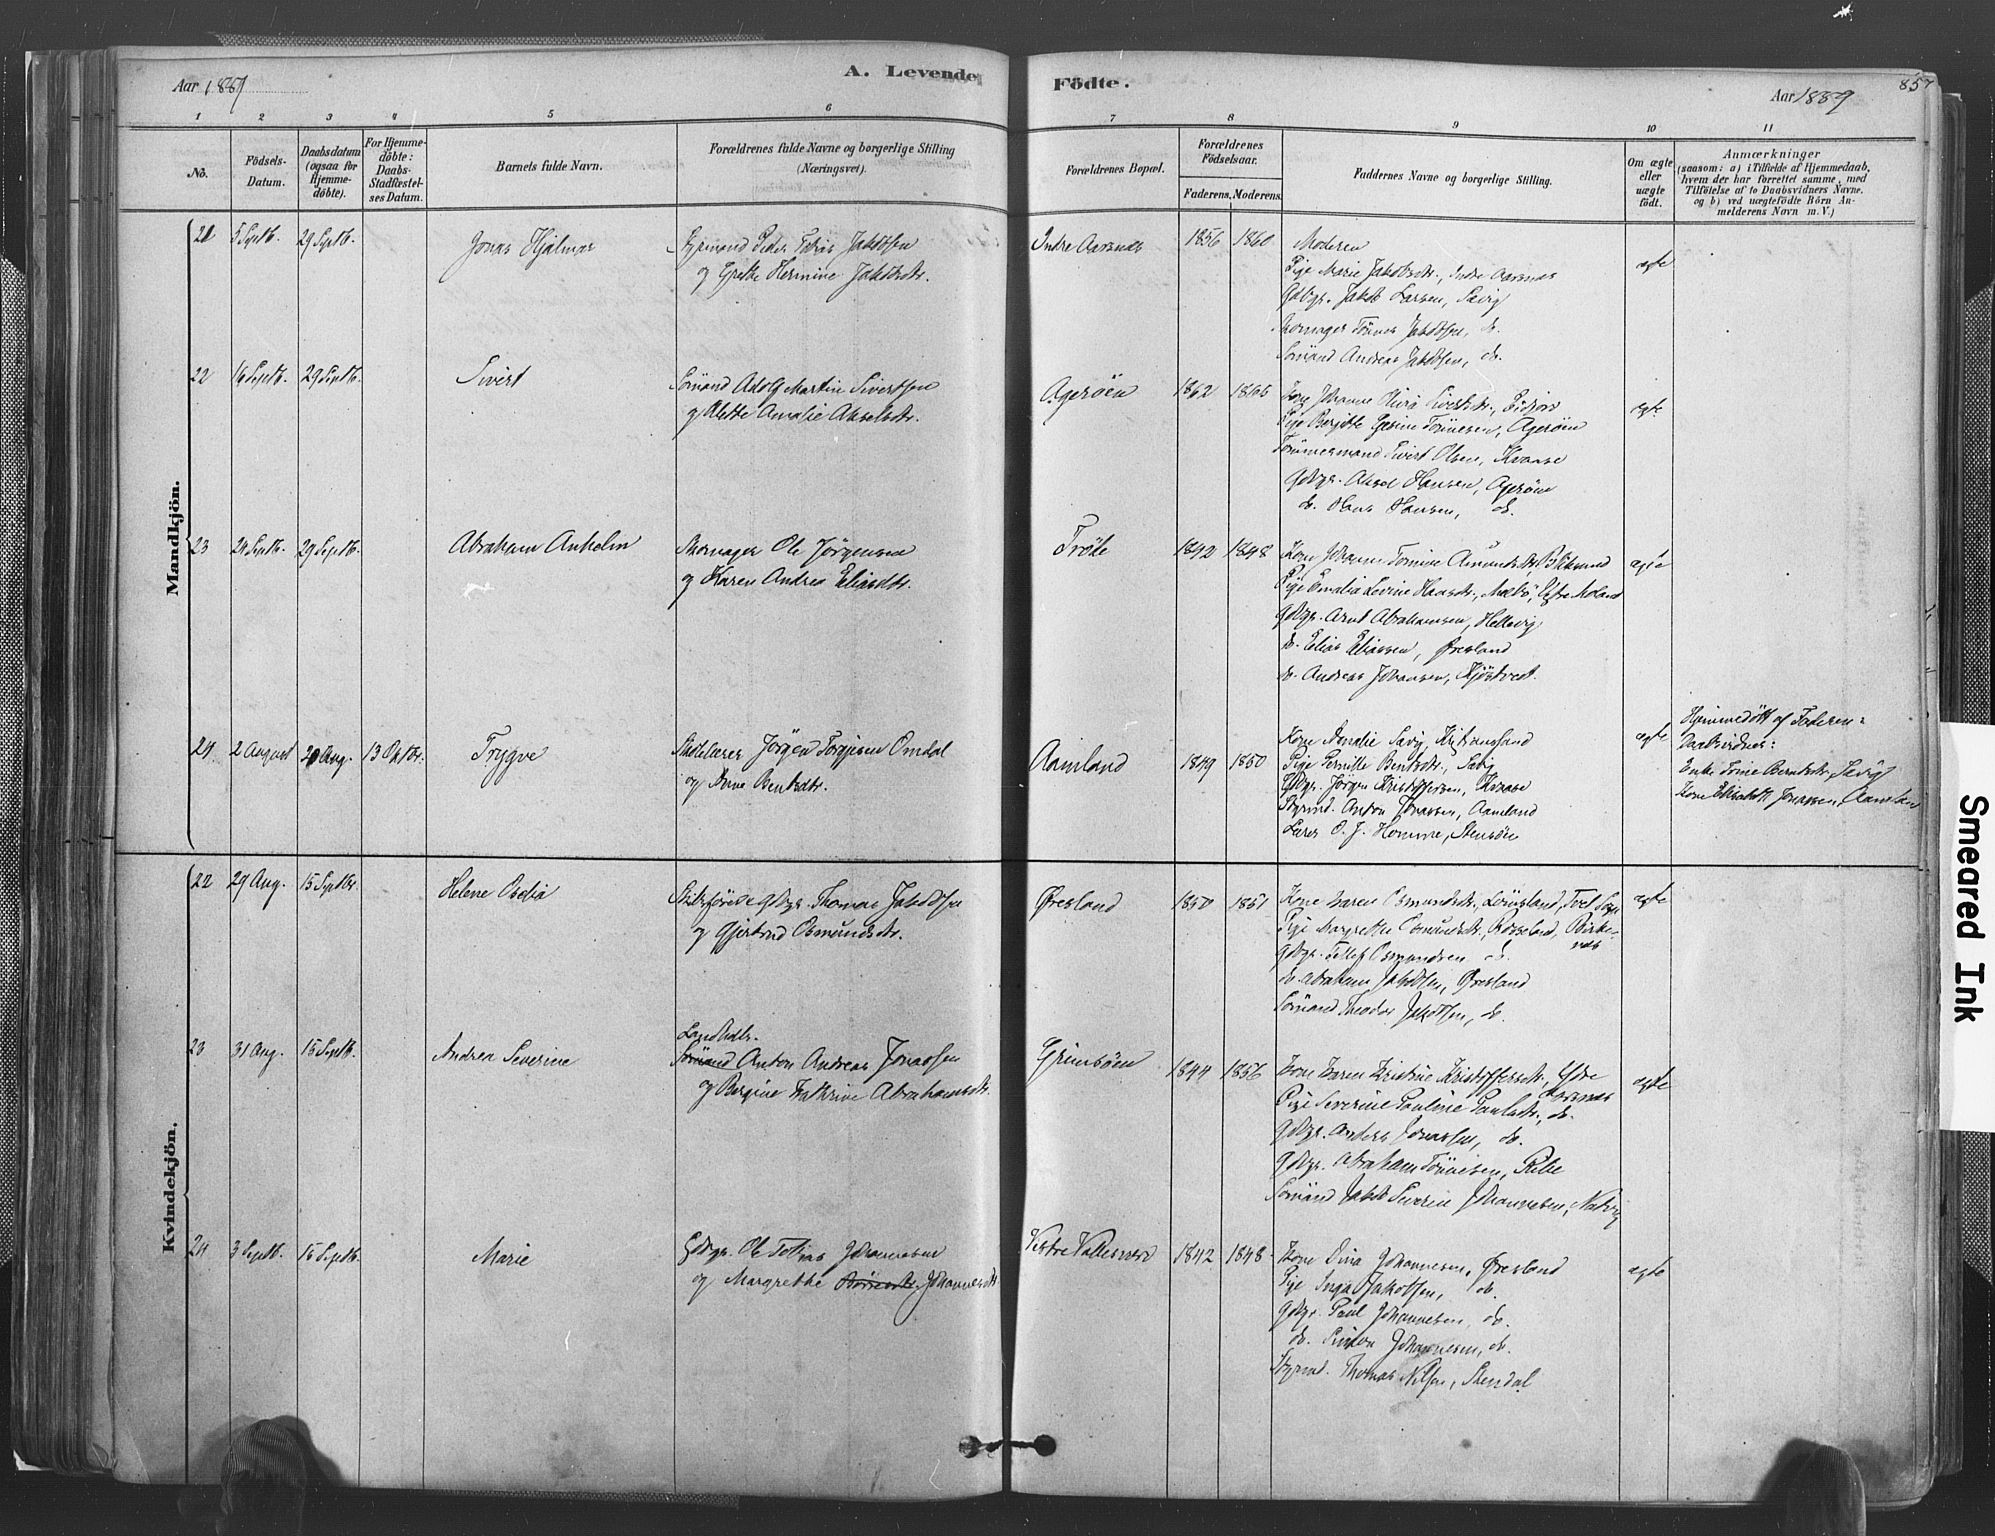 Aar 1889
A. Levende
Födte.
Aar 1889
857
1 2 3 4 5 6 7 8 9 10 11
No.
Födsels-
Datum.
Daabsdatum
(ogsaa for
Hjemme-
döbte).
For Hjemme-
döbte:
Daabs-
Stadfæstel-
ses Datum.
Barnets fulde Navn.
Forældrenes fulde Navne og borgerlige Stilling
(Næringsvei).
Forældrenes Bopæl.
Forældrenes
Födselsaar.
Faderens. Moderens.
Faddernes Navne og borgerlige Stilling.
Om ægte
eller
uægte
födt.
Anmærkninger
(saasom: a) i Tilfælde af Hjemmedaab,
hvem der har forrettet samme, med
Tilföielse af to Daabsvidners Navne.
og b) ved uægtefödte Börn An-
melderens Navn m. V.)
Mandkjön.
21 5 Septb. 29 Septb. Jonas Hjalmar
Styrmand Peder Tobias Jakobsen
og Grethe Hermine Jakobsdtr.
Indre Aarsnes 1856 1860
Moderen
Pige Marie Jakobsdtr., Indre Aarsnes
Gdbgr. Jakob Larsen, Sævig
Skomager Tönnes Jakobsen, do.
Sömand Andreas Jakobsen, do.
ægte
22 16 Septb. 29 Septb. Sivert
Sömand Adolf Martin Sivertsen
og Alette Amalie Akselsdtr.
Ageröen 1862 1865
Pige Bergitte Gesine Tönnesen, Ageröen
Tömmermand Sivert Olsen, Kvaase
Gdbgr. Aksel Hansen, Ageröen
do. Hans Hansen, do.
ægte
23 29 Septb. Abraham Anhelm
Skomager Ole Jörgensen
og Karen Andrea Eliasdtr.
Tröle 1842 1848
Pige Emalia Levine Hansdtr.,
Gdbgr. Arnt Abrahamsen, Hellevig
do. Elias Eliassen, Øresland
do. Andreas Johansen, Kjöstvedt
ægte
24. 2 August 13 Oktbr. Trygve
Skolelærer Jörgen Torgjusen Omdal
og Trine Bentsdtr.
Aamland 1849 1850
Kone Amalie Sævig, Kristianssand
Pige Pernille Bentsdtr., Sævig
Gdbgr. Jörgen Kristoffersen, Kvaase
Styrmd. Anton Jonassen, Aamland
Lærer O. J. Homme, Stensöen
ægte
Hjemmedöbt af Faderen:
Daabsvidner:
Enke Trine Berntsdtr., Sævig
Kone Elisabeth Jonassen, Aamlan
Kvindekjön.
22 29 Aug. 15 Septbr. Helene Oselia
Skibsförer & Gdbgr. Thomas Jakobsen
og Gjertrud Osmundsdtr.
Øresland 1850 1851
Kone Karen Osmundsdtr.,
Pige Margrethe Osmundsdtr.,
Gdbgr. Tellef Osmundsen do.
do. Abraham Jakobsen, Øresland
Sömand Theodor Jakobsen, do.
ægte
23 31 Aug. 15 Septb. Andrea Severine
Landhdlr.
Sömand Anton Andreas Jonassen
og Bergine Kathrine Abrahamsdtr.
Grimsöen 1844 1856
Kone Karen Kristine Kristoffersdtr., Ydre
Aarsnes
Pige Severine Pauline Paulsdtr., do.
Gdbgr. Anders Jonassen, do.
Gdbgr. Abraham Tönnesen, Ribe
Sömand Jakob Severin Johannesen,
ægte
24 3 Septb. 15 Septb. Marie
Gdbgr. Ole Tobias Johannesen
og Margrethe Johannesdtr.
Vestre Vallesverd 1842 1848
Kone Dina Johannesen, Øresland
Pige Inga Jakobsen, do.
Gdbgr. Paul Johannesen, do.
do. Simon Johannesen, do.
Styrmd. Thomas Nilsen, Stendal
ægte
Smeared Ink